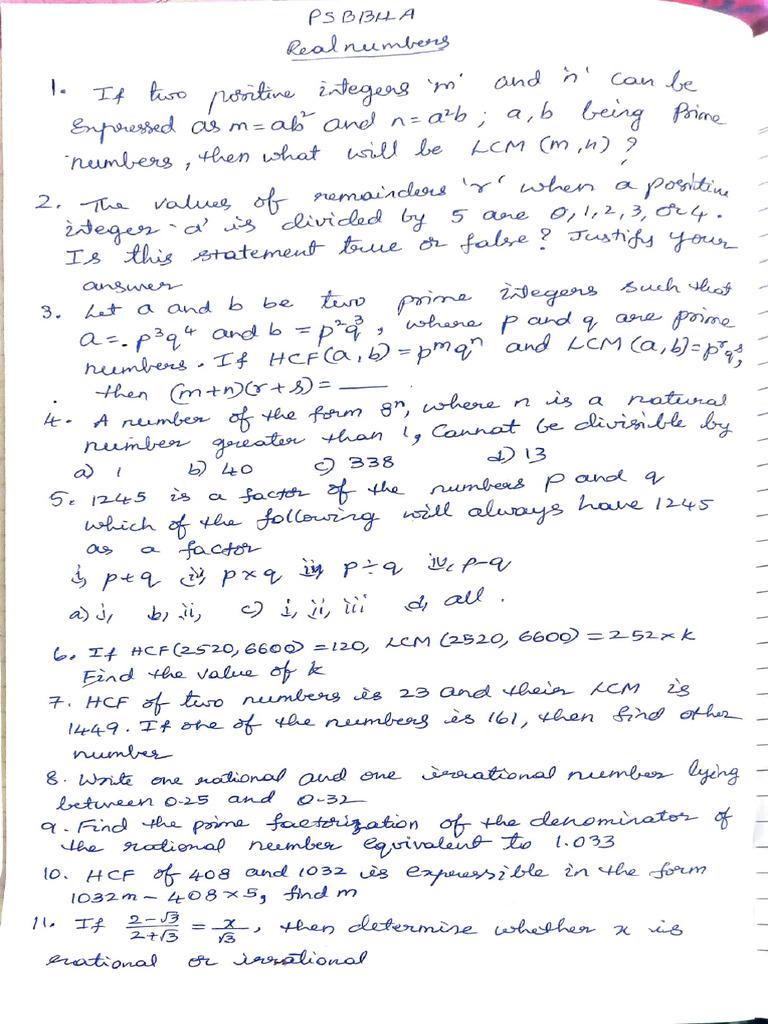 PSBBHA
Real numbers
1. If two positive integers 'm' and 'n' can be
Expressed as m = ab² and n = a²b ; a, b being Prime
numbers, then what will be LCM (m, n) ?
2. The values of remainders 'r' when a positive
integer 'a' is divided by 5 are 0, 1, 2, 3, or 4.
Is this statement true or false? Justify your
answer
3. Let a and b be two prime integers such that
a = p³q⁴ and b = p²q³, where p and q are prime
numbers. If HCF(a, b) = pᵐqⁿ and LCM (a, b) = pʳqˢ,
then (m+n)(r+s) = ___
4. A number of the form 8ⁿ, where n is a natural
number greater than 1, Cannot be divisible by
a) 1 b) 40 c) 338 d) 13
5. 1245 is a factor of the numbers p and q
which of the following will always have 1245
as a factor
i, p+q ii, p×q iii, p÷q iv, p-q
a) i, b, ii, c) i, ii, iii d, all.
6. If HCF(2520, 6600) = 120, LCM (2520, 6600) = 252×k
Find the value of k
7. HCF of two numbers is 23 and their LCM is
1449. If one of the numbers is 161, then find other
number
8. Write one rational and one irrational number lying
between 0.25 and 0.32
9. Find the prime factorization of the denominator of
the rational number equivalent to 1.033
10. HCF of 408 and 1032 is expressible in the form
1032m - 408×5, find m
11. If (2-√3)/(2+√3) = x/√3, then determine whether x is
rational or irrational